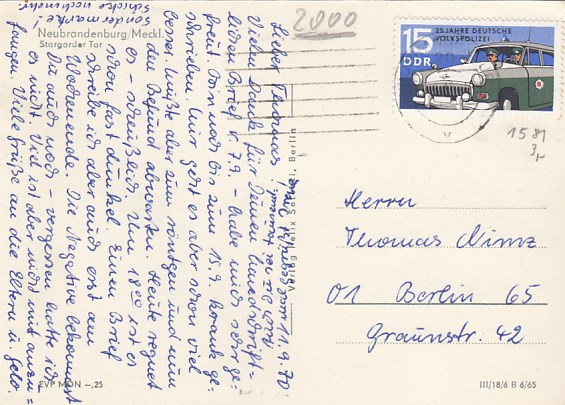 2000
Neubrandenburg/Meckl.
Stargarder Tor
Sondermarke!
schicke noch mehr
25 JAHRE DEUTSCHE
VOLKSPOLIZEI
15
DDR
1581
3,-
11.9.70
Lieber Thomas!
Vielen Dank für Deinen Um und
lieben Brief v. 7.9. – habe mich sehr ge-
freut. Bin noch bis zum 15.9. krank ge-
schrieben. Mir geht es aber schon viel
besser. Mußte aber zum röntgen und nun
den Befund abwarten. Heute regnet
es – scheußlich. Um 18°° ist es
schon fast dunkel. Einen Brief
schreibe ich aber auch erst am
Wochenende. Die Negative bekommst
Du auch noch – vergessen hatte ich
es nicht. Viel ist aber nicht mit anzu=
fangen. Viele Grüße an die Eltern u. Gebr.
Verlag Felix Setecki, Berlin
Herrn
Thomas Nimz
01 Berlin 65
Graunstr. 42
EVP MDN –,25
III/18/6 B 6/65